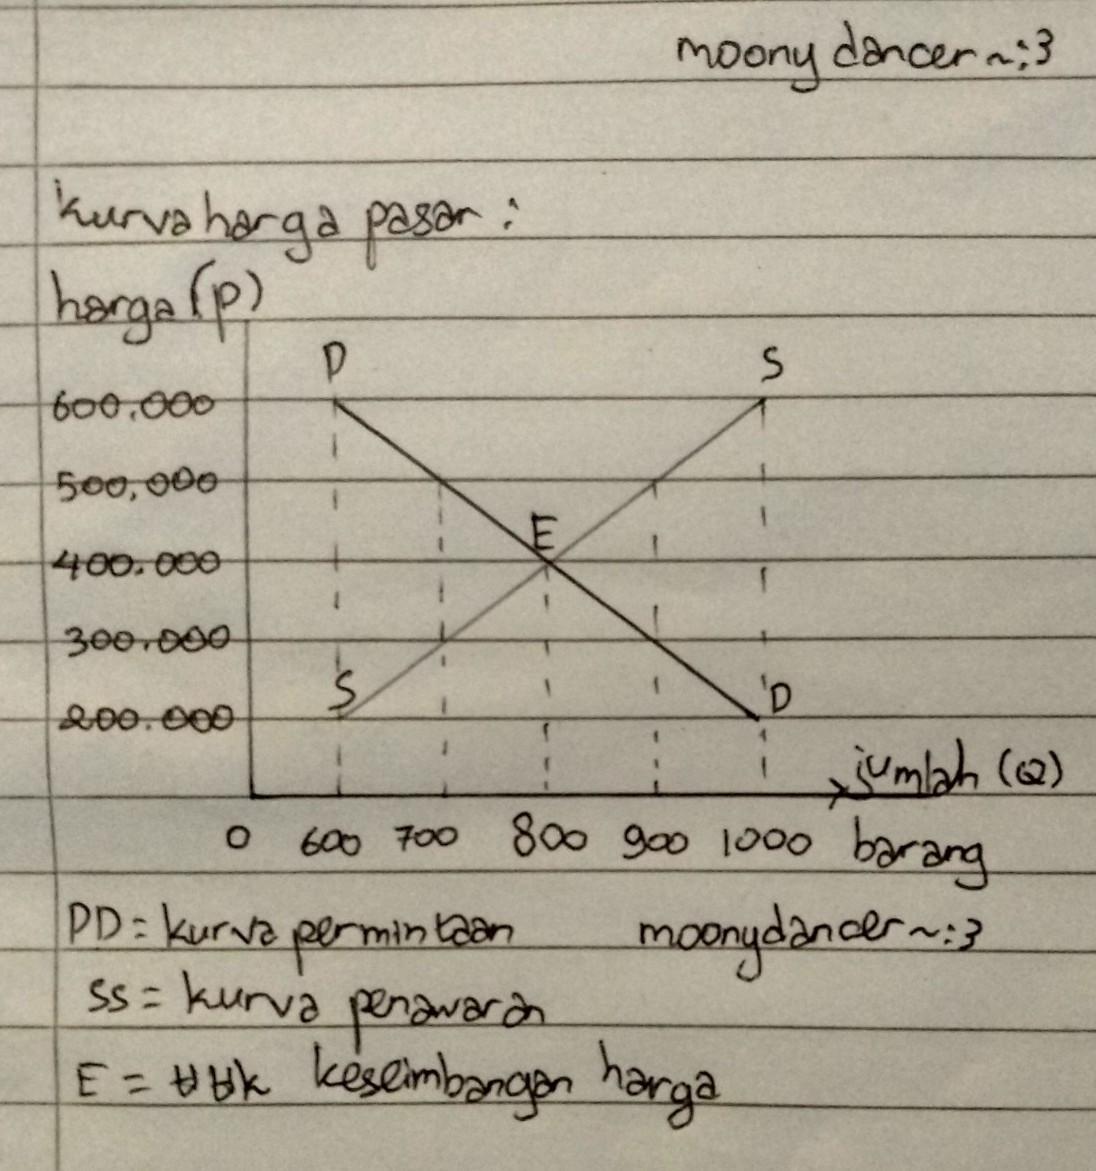 moony dancer~:3
kurva harga pasar :
harga (p)
D S
600.000
500.000
E
400.000
300.000
S D
200.000
jumlah (Q)
0 600 700 800 900 1000 barang
DD = kurva permintaan moonydancer~:3
SS = kurva penawaran
E = titik keseimbangan harga